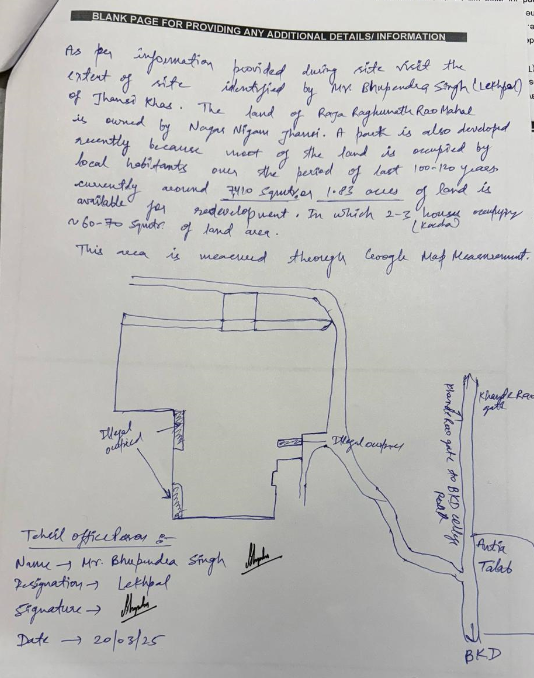 BLANK PAGE FOR PROVIDING ANY ADDITIONAL DETAILS/ INFORMATION
As per information provided during site visit the
extent of site identified by Mr. Bhupendra Singh (Lekhpal)
of Jhansi Khas. The land of Raja Raghunath Rao Mahal
is owned by Nagar Nigam Jhansi. A park is also developed
recently because most of the land is occupied by
local habitants over the period of last 100-120 years.
currently around 7410 Sqmtr, or 1.83 acres of land is
available for redevelopment. In which 2-3 houses occupying
(Kaccha)
~60-70 Sqmtr. of land area.
This area is measured through Google Map Measurement.
Illegal
occupied
Illegal occupied
Khande Rao
gate
Khande Rao gate to BKD college
Road
Antia
Talab
BKD
Tehsil office :-
Name → Mr. Bhupendra Singh
Designation → Lekhpal
Signature →
Date → 20/03/25